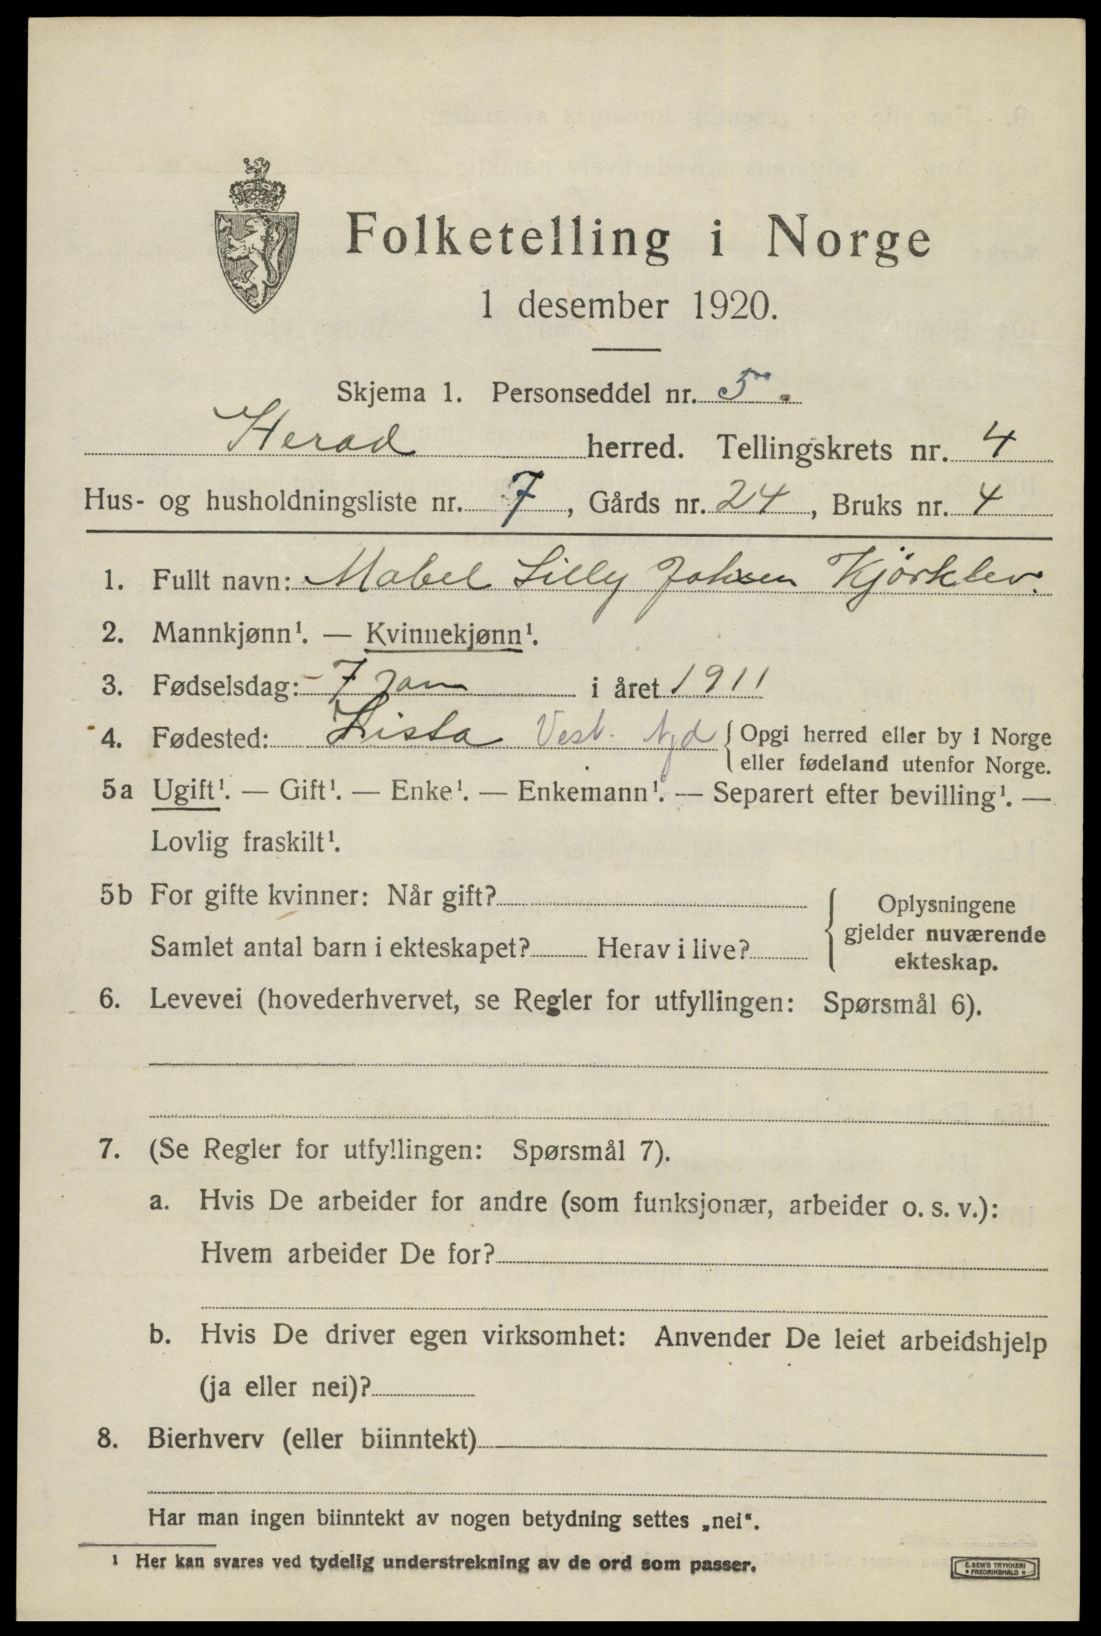 Folketelling i Norge
1 desember 1920.
Skjema 1. Personseddel nr. 5.
Herad herred. Tellingskrets nr. 4
Hus- og husholdningsliste nr. 7, Gårds nr. 24, Bruks nr. 4
1. Fullt navn: Mabel Lilly Johsen Kjørklev.
2. Mannkjønn¹. — Kvinnekjønn¹.
3. Fødselsdag: 7 jan i året 1911
4. Fødested: Lista Vest. Agd { Opgi herred eller by i Norge
eller fødeland utenfor Norge.
5a Ugift¹. — Gift¹. — Enke¹. — Enkemann¹. — Separert efter bevilling¹. —
Lovlig fraskilt¹.
5b For gifte kvinner: Når gift?
Samlet antal barn i ekteskapet? Herav i live?
{ Oplysningene
gjelder nuværende
ekteskap.
6. Levevei (hovederhvervet, se Regler for utfyllingen: Spørsmål 6).
7. (Se Regler for utfyllingen: Spørsmål 7).
a. Hvis De arbeider for andre (som funksjonær, arbeider o. s. v.):
Hvem arbeider De for?
b. Hvis De driver egen virksomhet: Anvender De leiet arbeidshjelp
(ja eller nei)?
8. Bierhverv (eller biinntekt)
Har man ingen biinntekt av nogen betydning settes „nei“.
¹ Her kan svares ved tydelig understrekning av de ord som passer.
E. SEM'S TRYKKERI
* FREDRIKSHALD *